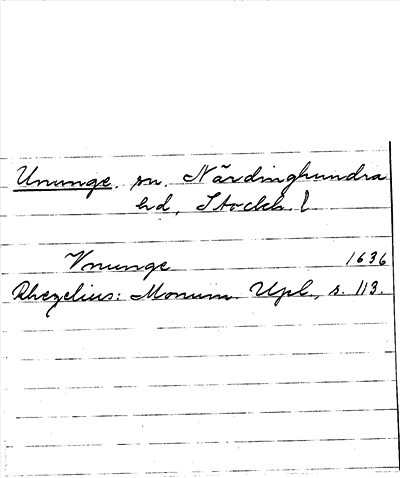 Ununge. sn. Närdinghundra
hd, Stockh. l
Vnunge 1636
Rhezelius: Monum. Upl., s. 113.